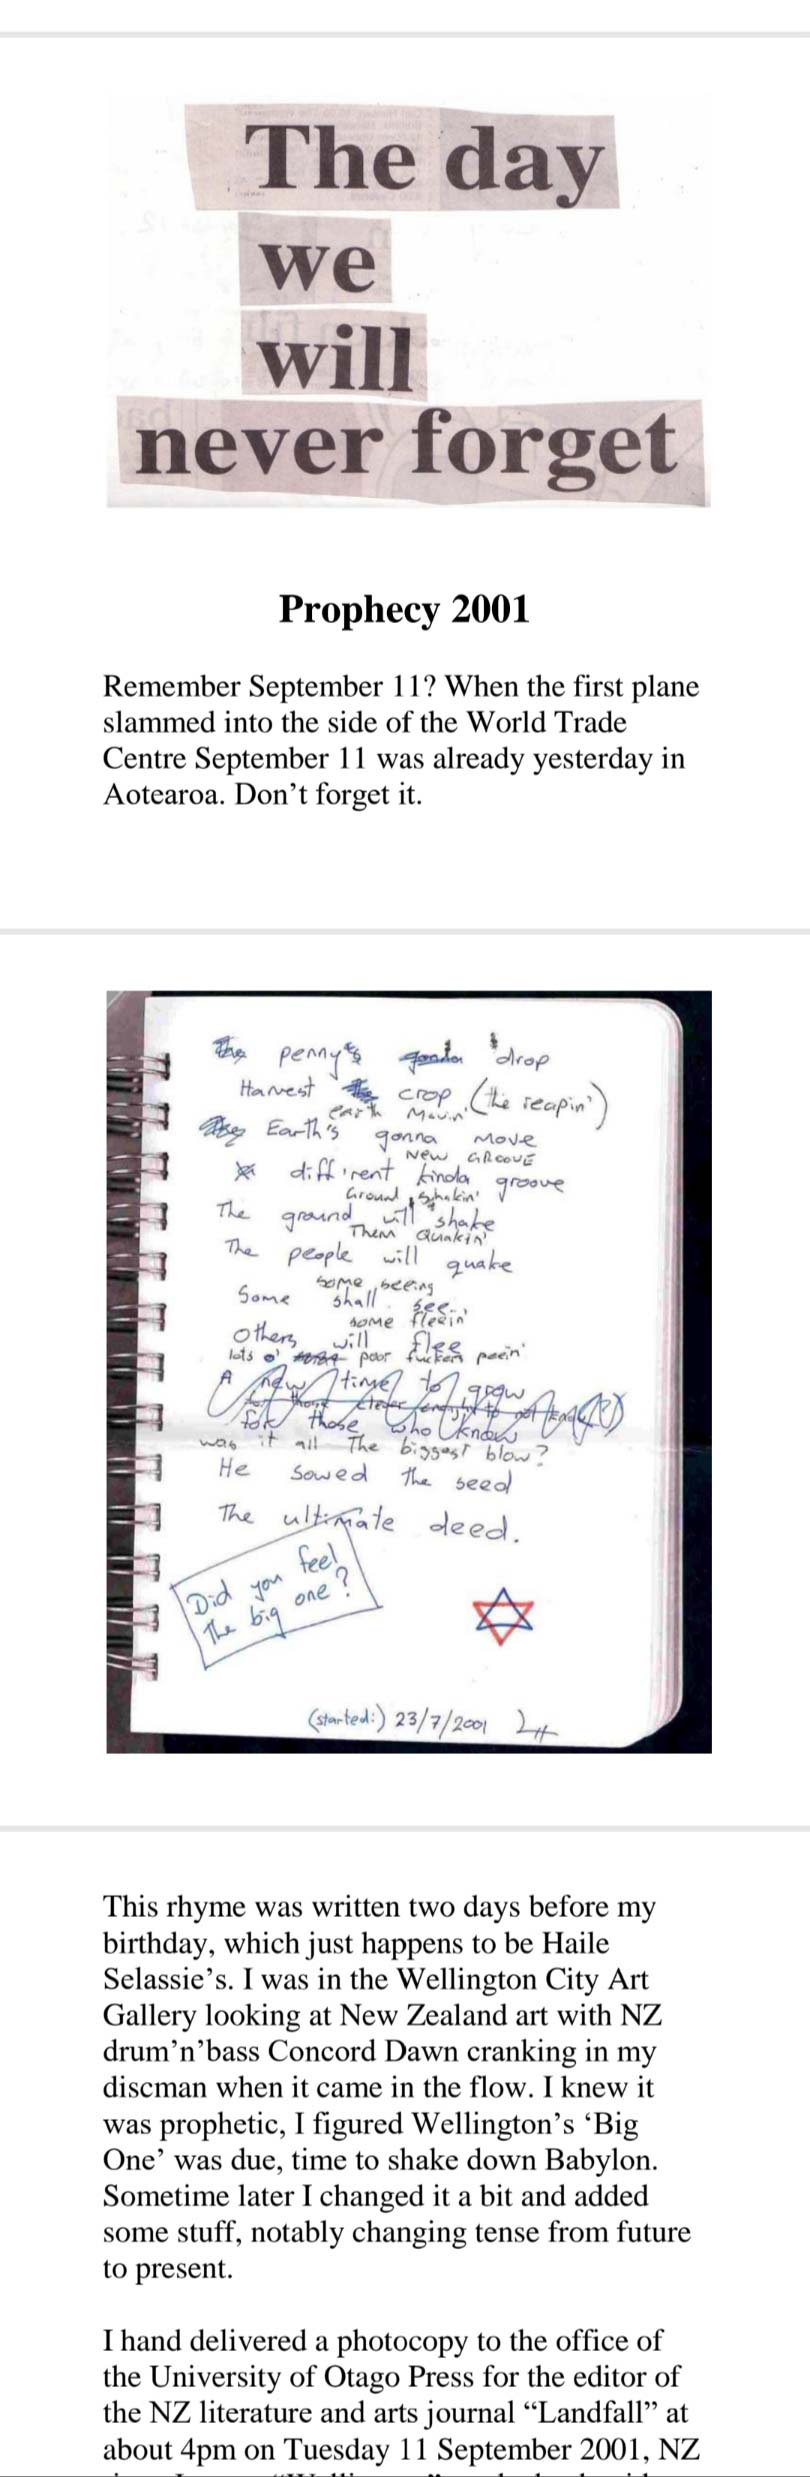 The day
we
will
never forget
Prophecy 2001
Remember September 11? When the first plane
slammed into the side of the World Trade
Centre September 11 was already yesterday in
Aotearoa. Don’t forget it.
The penny's gonna drop
Harvest the crop (the reapin')
earth Movin'
Earth's gonna move
NEW GROOVE
diff'rent kinda groove
Ground shakin'
The ground will shake
Them Quakin'
The people will quake
some seeing
Some shall see
some fleein'
Others will flee
lots o' poor fuckers peein'
A new time to grow
for those who know
was it all The biggest blow?
He sowed the seed
The ultimate deed.
Did you feel
The big one?
(started:) 23/7/2001
This rhyme was written two days before my
birthday, which just happens to be Haile
Selassie’s. I was in the Wellington City Art
Gallery looking at New Zealand art with NZ
drum’n’bass Concord Dawn cranking in my
discman when it came in the flow. I knew it
was prophetic, I figured Wellington’s ‘Big
One’ was due, time to shake down Babylon.
Sometime later I changed it a bit and added
some stuff, notably changing tense from future
to present.
I hand delivered a photocopy to the office of
the University of Otago Press for the editor of
the NZ literature and arts journal “Landfall” at
about 4pm on Tuesday 11 September 2001, NZ